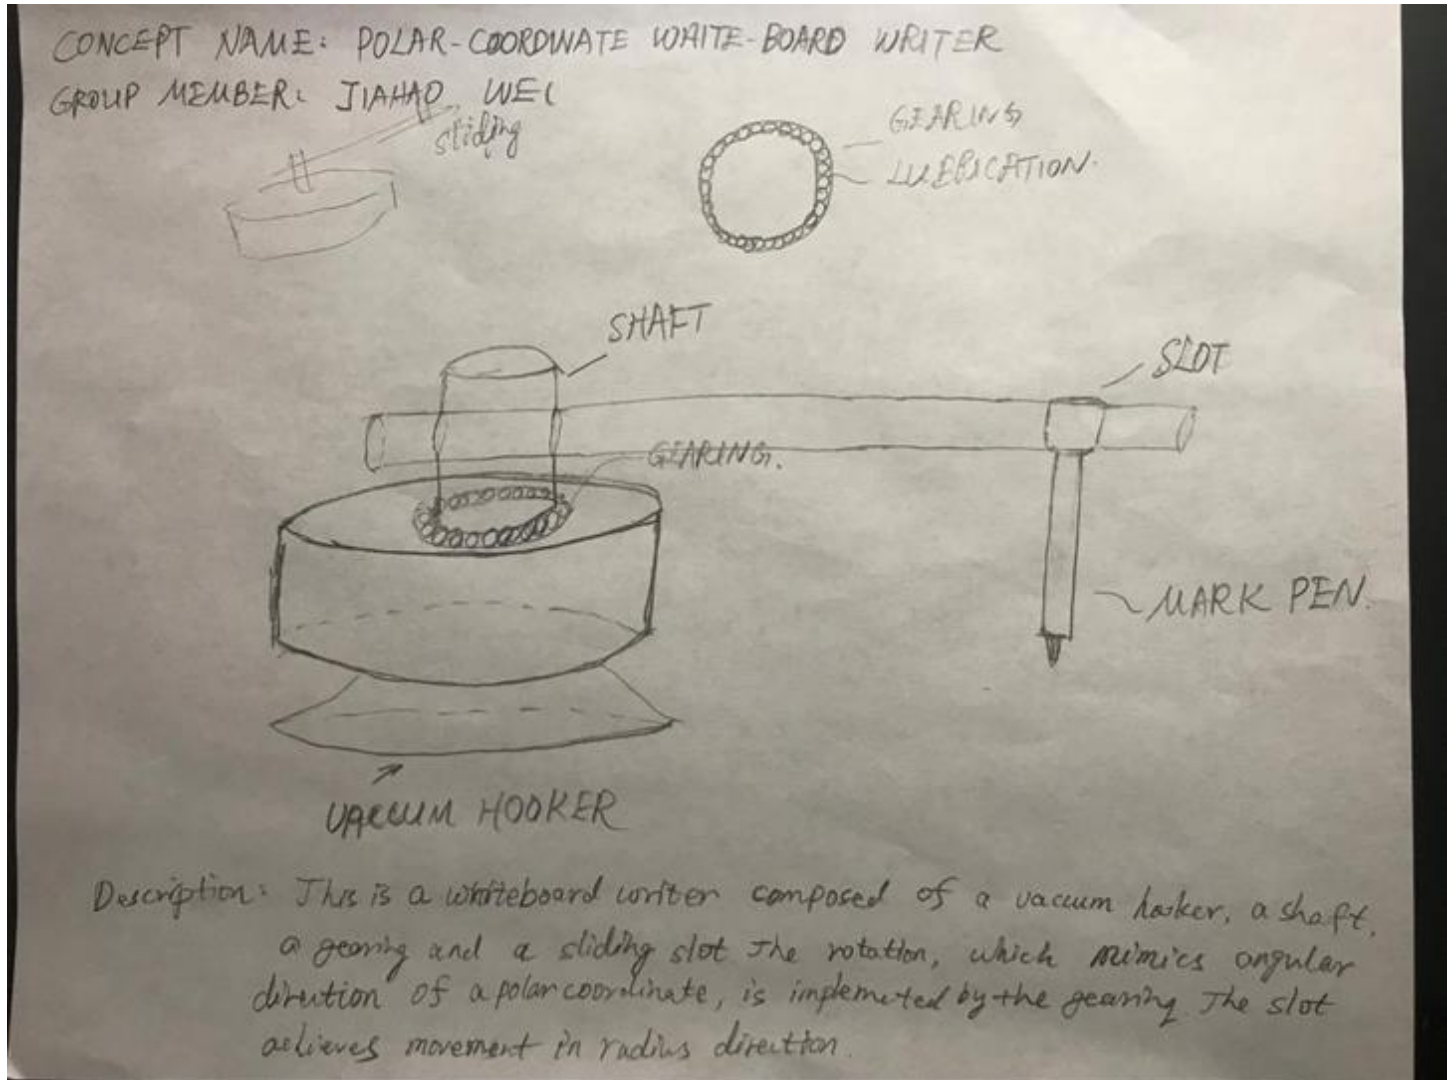 CONCEPT NAME: POLAR-COORDINATE WHITE-BOARD WRITER
GROUP MEMBER: JIAHAO WEI
sliding
GEARING
LUBRICATION.
SHAFT
SLOT
GEARING.
MARK PEN.
VACCUM HOOKER
Description: This is a whiteboard writer composed of a vaccum hooker, a shaft,
a gearing and a sliding slot The rotation, which mimics angular
direction of a polar coordinate, is implemeted by the gearing. The slot
achieves movement in radius direction.